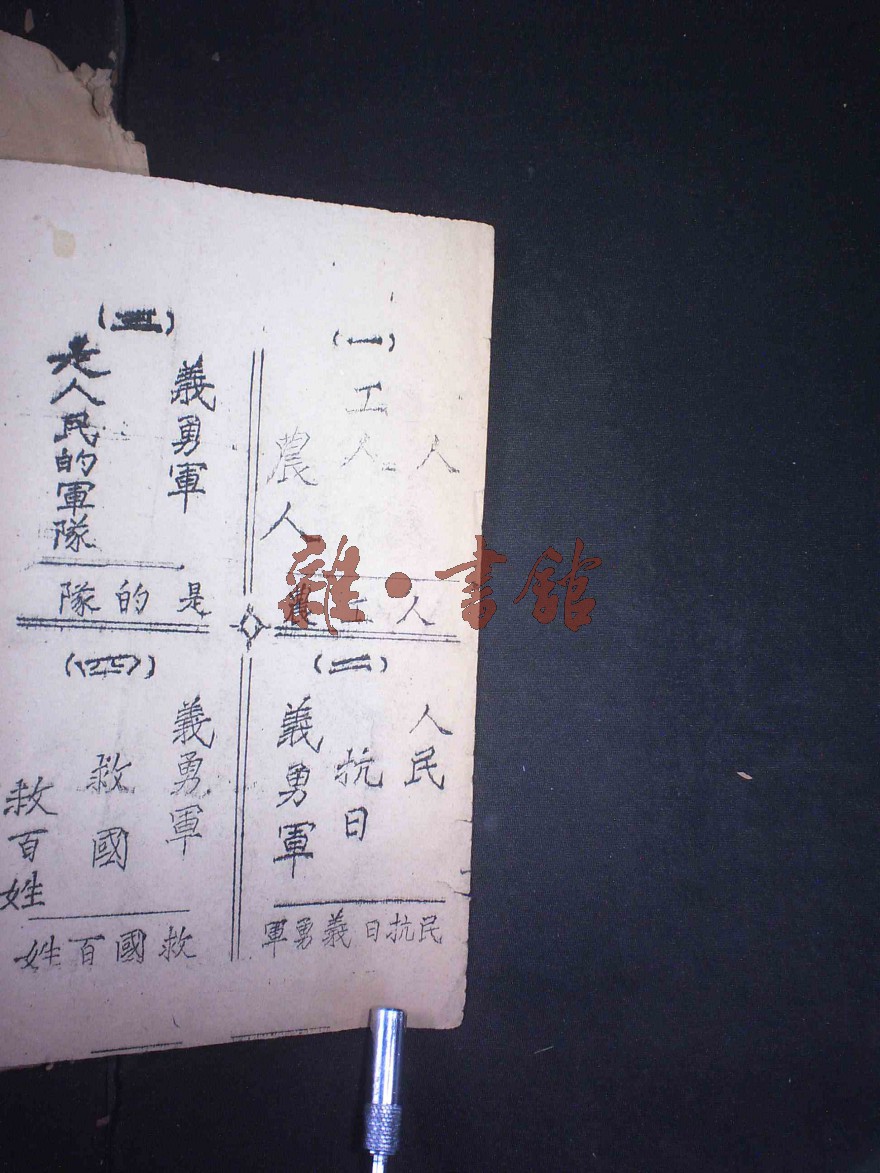 (一)
人
工人
農人
人工農
(二)
人民
抗日
義勇軍
民抗日義勇軍
(三)
義勇軍
是人民的軍隊
是的隊
(四)
義勇軍
救國
救百姓
救國百姓
雜·書館